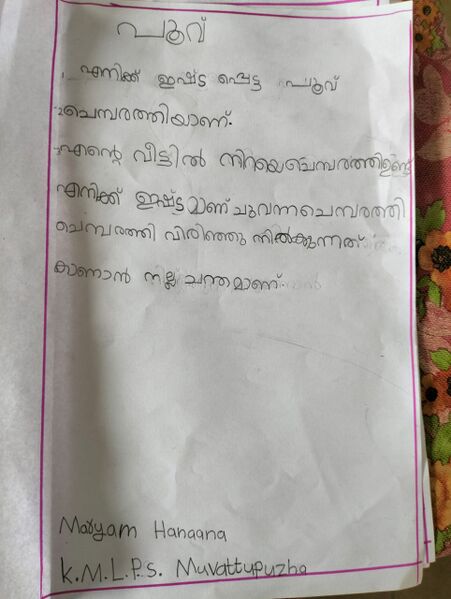 പൂവ്
1. എനിക്ക് ഇഷ്ട പ്പെട്ട പൂവ്
2 ചെമ്പരത്തിയാണ്.
3 എന്റെ വീട്ടിൽ നിറയെ ചെമ്പരത്തിഉണ്ട്
എനിക്ക് ഇഷ്ടമാണ് ചുവന്ന ചെമ്പരത്തി
ചെമ്പരത്തി വിരിഞ്ഞു നിൽക്കുന്നത്
കാണാൻ നല്ല ചന്തമാണ്.
Maryam Hanaana
K.M.L.P.s. Muvattupuzha